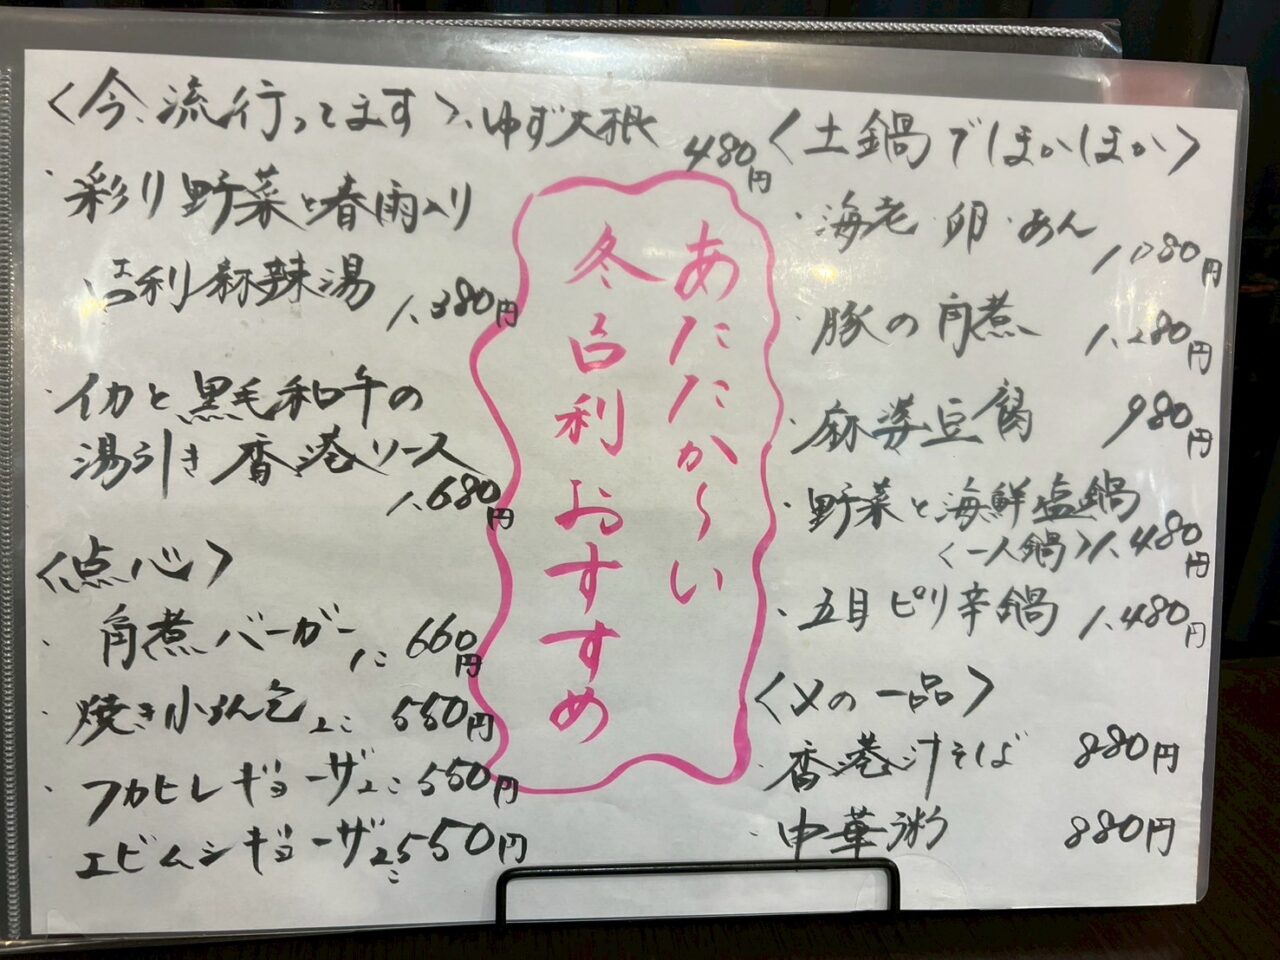 〈今、流行ってます〉、ゆず大根 480円
・彩り野菜と春雨入り
利麻辣湯 1,380円
・イカと黒毛和牛の
湯引き香港ソース
1,680円
〈点心〉
・角煮バーガー 1コ 660円
・焼き小ろん包 2コ 550円
・フカヒレギョーザ 2コ 550円
エビムシギョーザ 2コ 550円
あたたか～い
冬 利おすすめ
〈土鍋でほかほか〉
・海老・卵・あん 1,080円
豚の角煮 1,280円
・麻婆豆腐 980円
・野菜と海鮮塩鍋
〈一人鍋〉1,480円
・五目ピリ辛鍋 1,480円
〈〆の一品〉
・香港汁そば 880円
・中華粥 880円